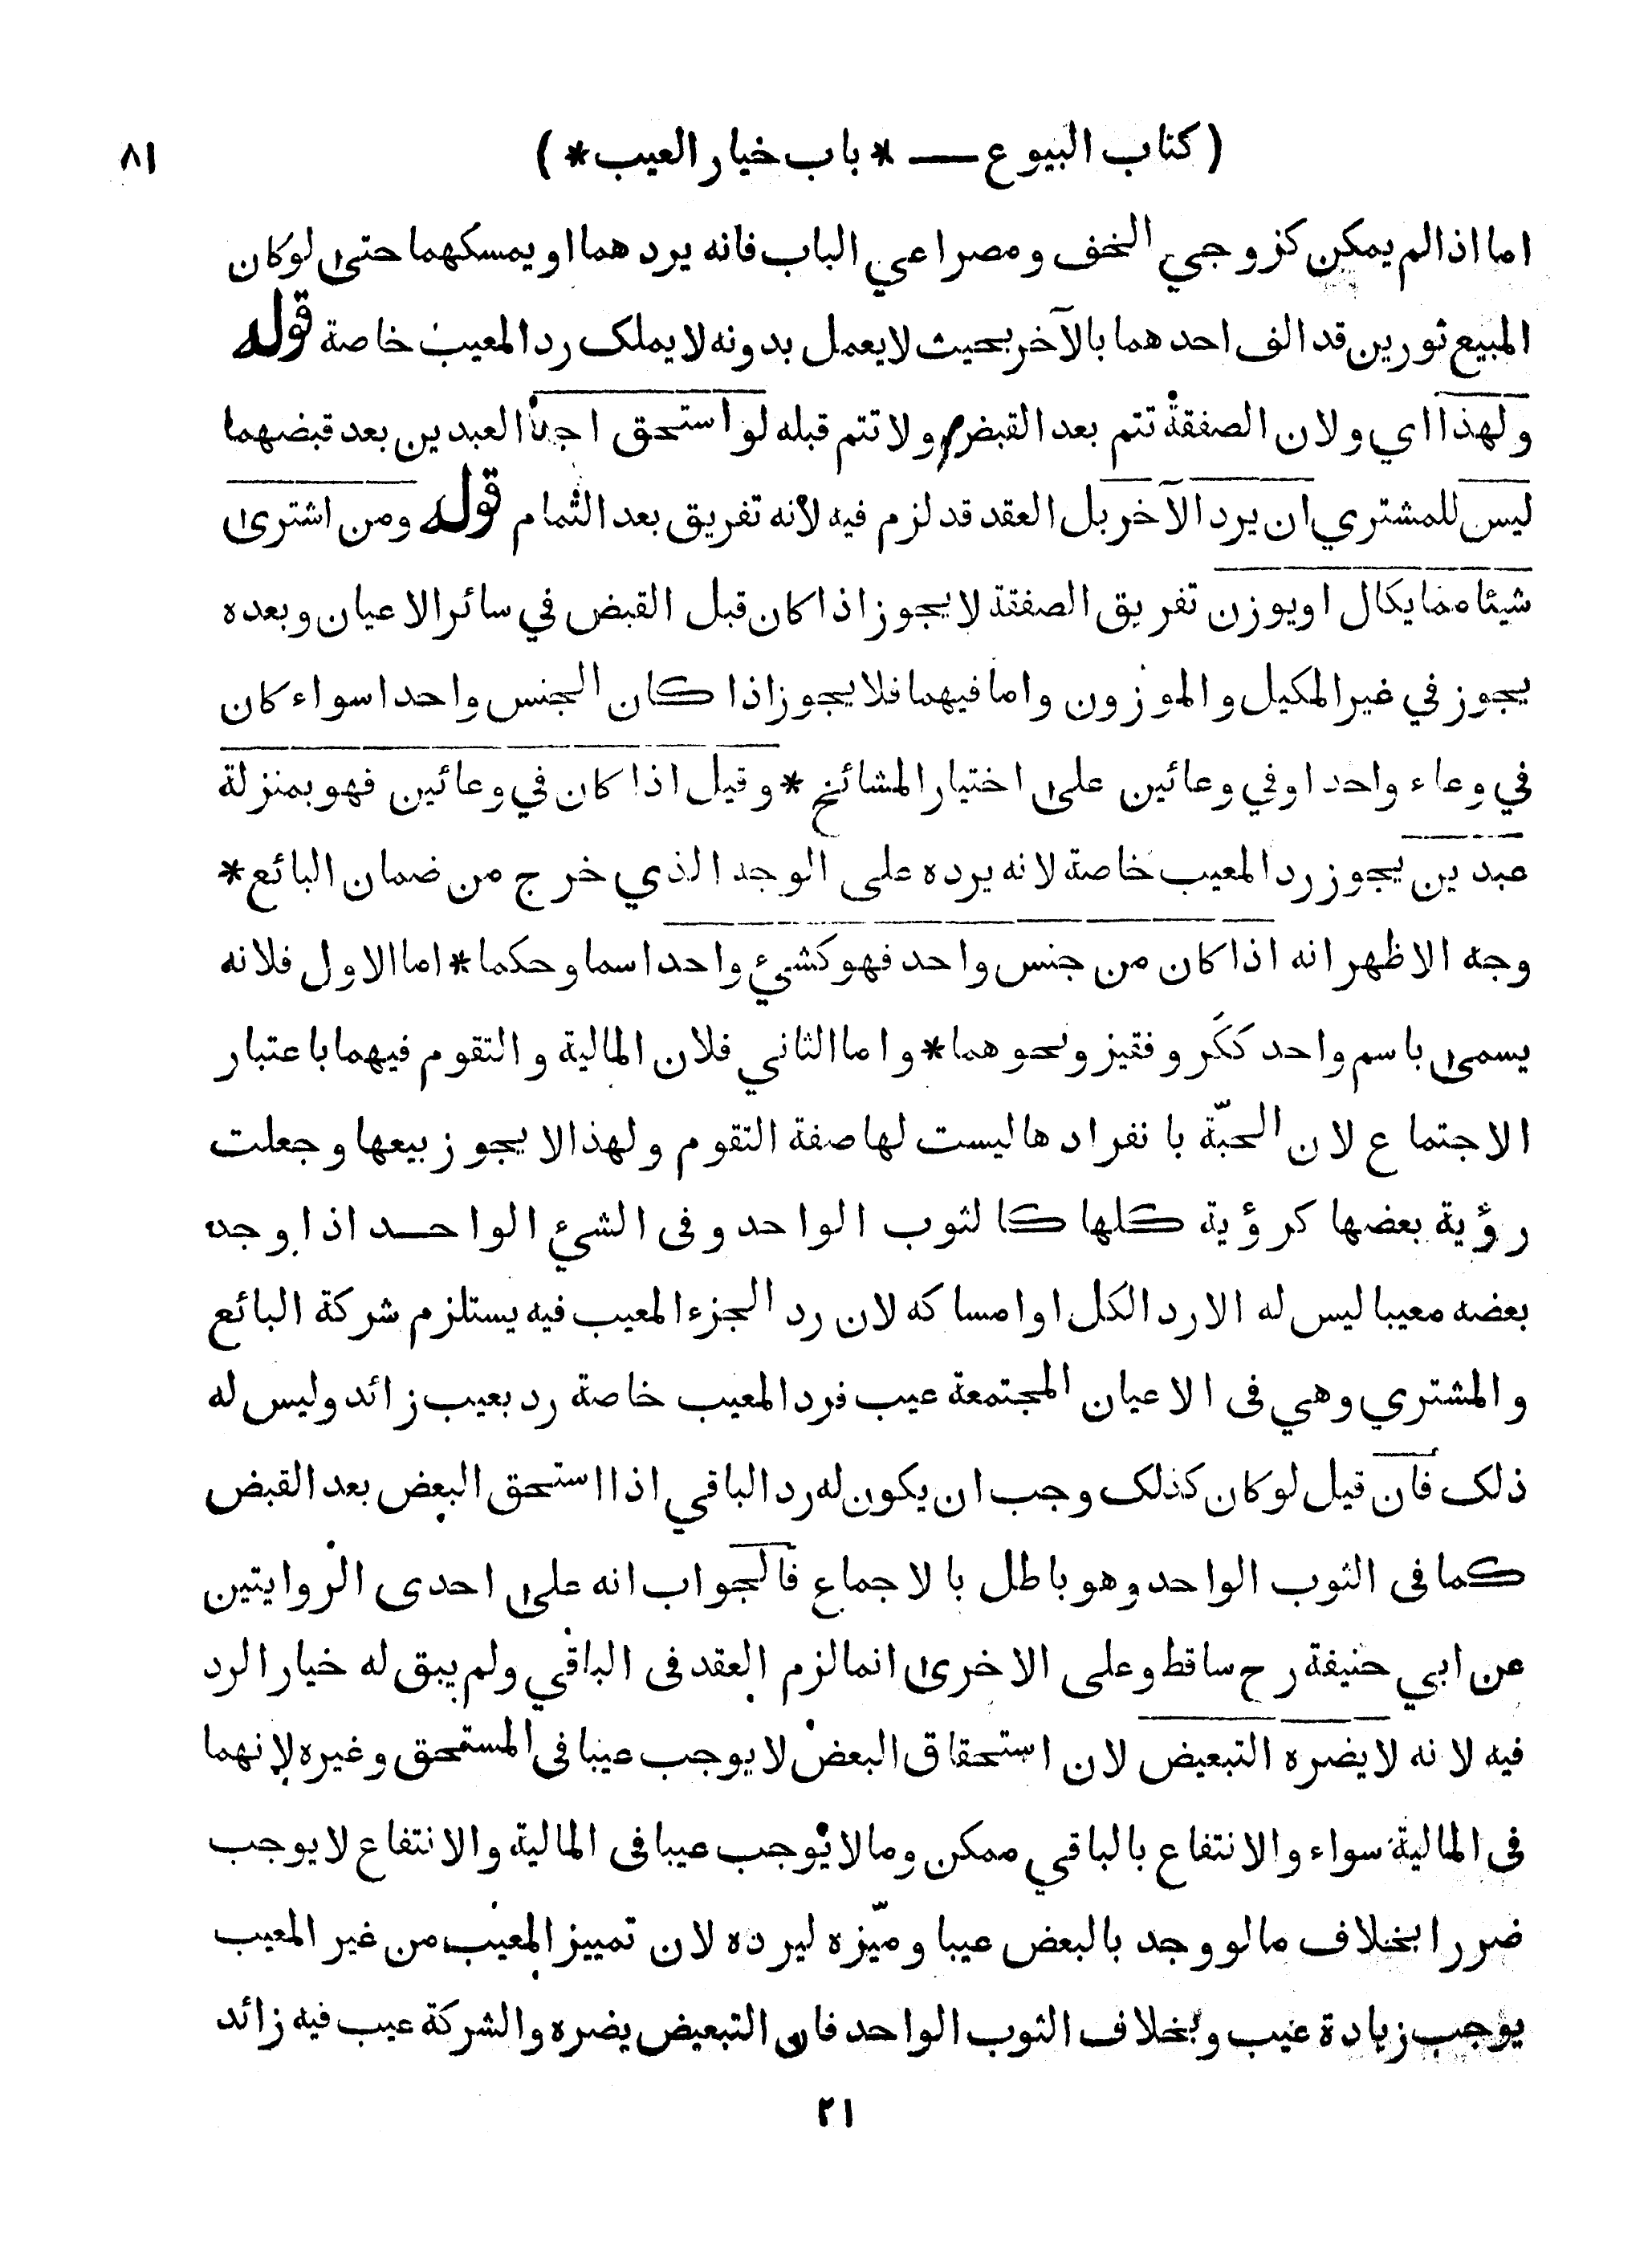 ( كتاب البيوع — * باب خيار العيب * )
٨١
اما اذا لم يمكن كزوجي الخف ومصراعي الباب فانه يردهما او يمسكهما حتى لو كان
المبيع ثورين قد الف احدهما بالآخر بحيث لا يعمل بدونه لا يملك رد المعيب خاصة قوله
ولهذا اي ولان الصفقة تتم بعد القبض ولا تتم قبله لو استحق احد العبدين بعد قبضهما
ليس للمشتري ان يرد الآخر بل العقد قد لزم فيه لانه تفريق بعد التمام قوله ومن اشترى
شيئا مما يكال او يوزن تفريق الصفقة لا يجوز اذا كان قبل القبض في سائر الاعيان وبعده
يجوز في غير المكيل والموزون واما فيهما فلا يجوز اذا كان الجنس واحدا سواء كان
في وعاء واحد او في وعائين على اختيار المشائخ * وقيل اذا كان في وعائين فهو بمنزلة
عبدين يجوز رد المعيب خاصة لانه يرده على الوجه الذي خرج من ضمان البائع *
وجه الاظهر انه اذا كان من جنس واحد فهو كشيء واحد اسما وحكما * اما الاول فلانه
يسمى باسم واحد ككر وقفيز ونحوهما * واما الثاني فلان المالية والتقوم فيهما باعتبار
الاجتماع لان الحبّة بانفرادها ليست لها صفة التقوم ولهذا لا يجوز بيعها وجعلت
رؤية بعضها كرؤية كلها كالثوب الواحد وفى الشيء الواحد اذا وجد
بعضه معيبا ليس له الا رد الكل او امساكه لان رد الجزء المعيب فيه يستلزم شركة البائع
والمشتري وهي فى الاعيان المجتمعة عيب فرد المعيب خاصة رد بعيب زائد وليس له
ذلك فان قيل لو كان كذلك وجب ان يكون له رد الباقي اذا استحق البعض بعد القبض
كما فى الثوب الواحد وهو باطل بالاجماع فالجواب انه على احدى الروايتين
عن ابي حنيفة رح ساقط وعلى الاخرى انما لزم العقد فى الباقي ولم يبق له خيار الرد
فيه لانه لا يضره التبعيض لان استحقاق البعض لا يوجب عيبا فى المستحق وغيره لانهما
فى المالية سواء والانتفاع بالباقي ممكن وما لا يوجب عيبا فى المالية والانتفاع لا يوجب
ضررا بخلاف ما لو وجد بالبعض عيبا وميّزه ليرده لان تمييز المعيب من غير المعيب
يوجب زيادة عيب وبخلاف الثوب الواحد فان التبعيض يضره والشركة عيب فيه زائد
٢١